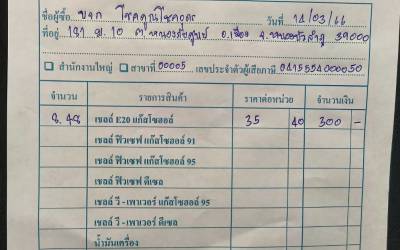 ชื่อผู้ซื้อ บจก โชคคูณโชคอุดร วันที่ 14/03/66
ที่อยู่ 181 ม.10 ต.หนองภัยศูนย์ อ.เมือง จ.หนองบัวลำภู 39000
สำนักงานใหญ่ สาขาที่ 00005 เลขประจำตัวผู้เสียภาษี 0415554000050
จำนวน รายการสินค้า ราคาต่อหน่วย จำนวนเงิน
8.48 เชลล์ E20 แก๊สโซฮอล์ 35 40 300 -
เชลล์ ฟิวเซฟ แก๊สโซฮอล์ 91
เชลล์ ฟิวเซฟ แก๊สโซฮอล์ 95
เชลล์ ฟิวเซฟ ดีเซล
เชลล์ วี - เพาเวอร์ แก๊สโซฮอล์ 95
เชลล์ วี - เพาเวอร์ ดีเซล
น้ำมันเครื่อง